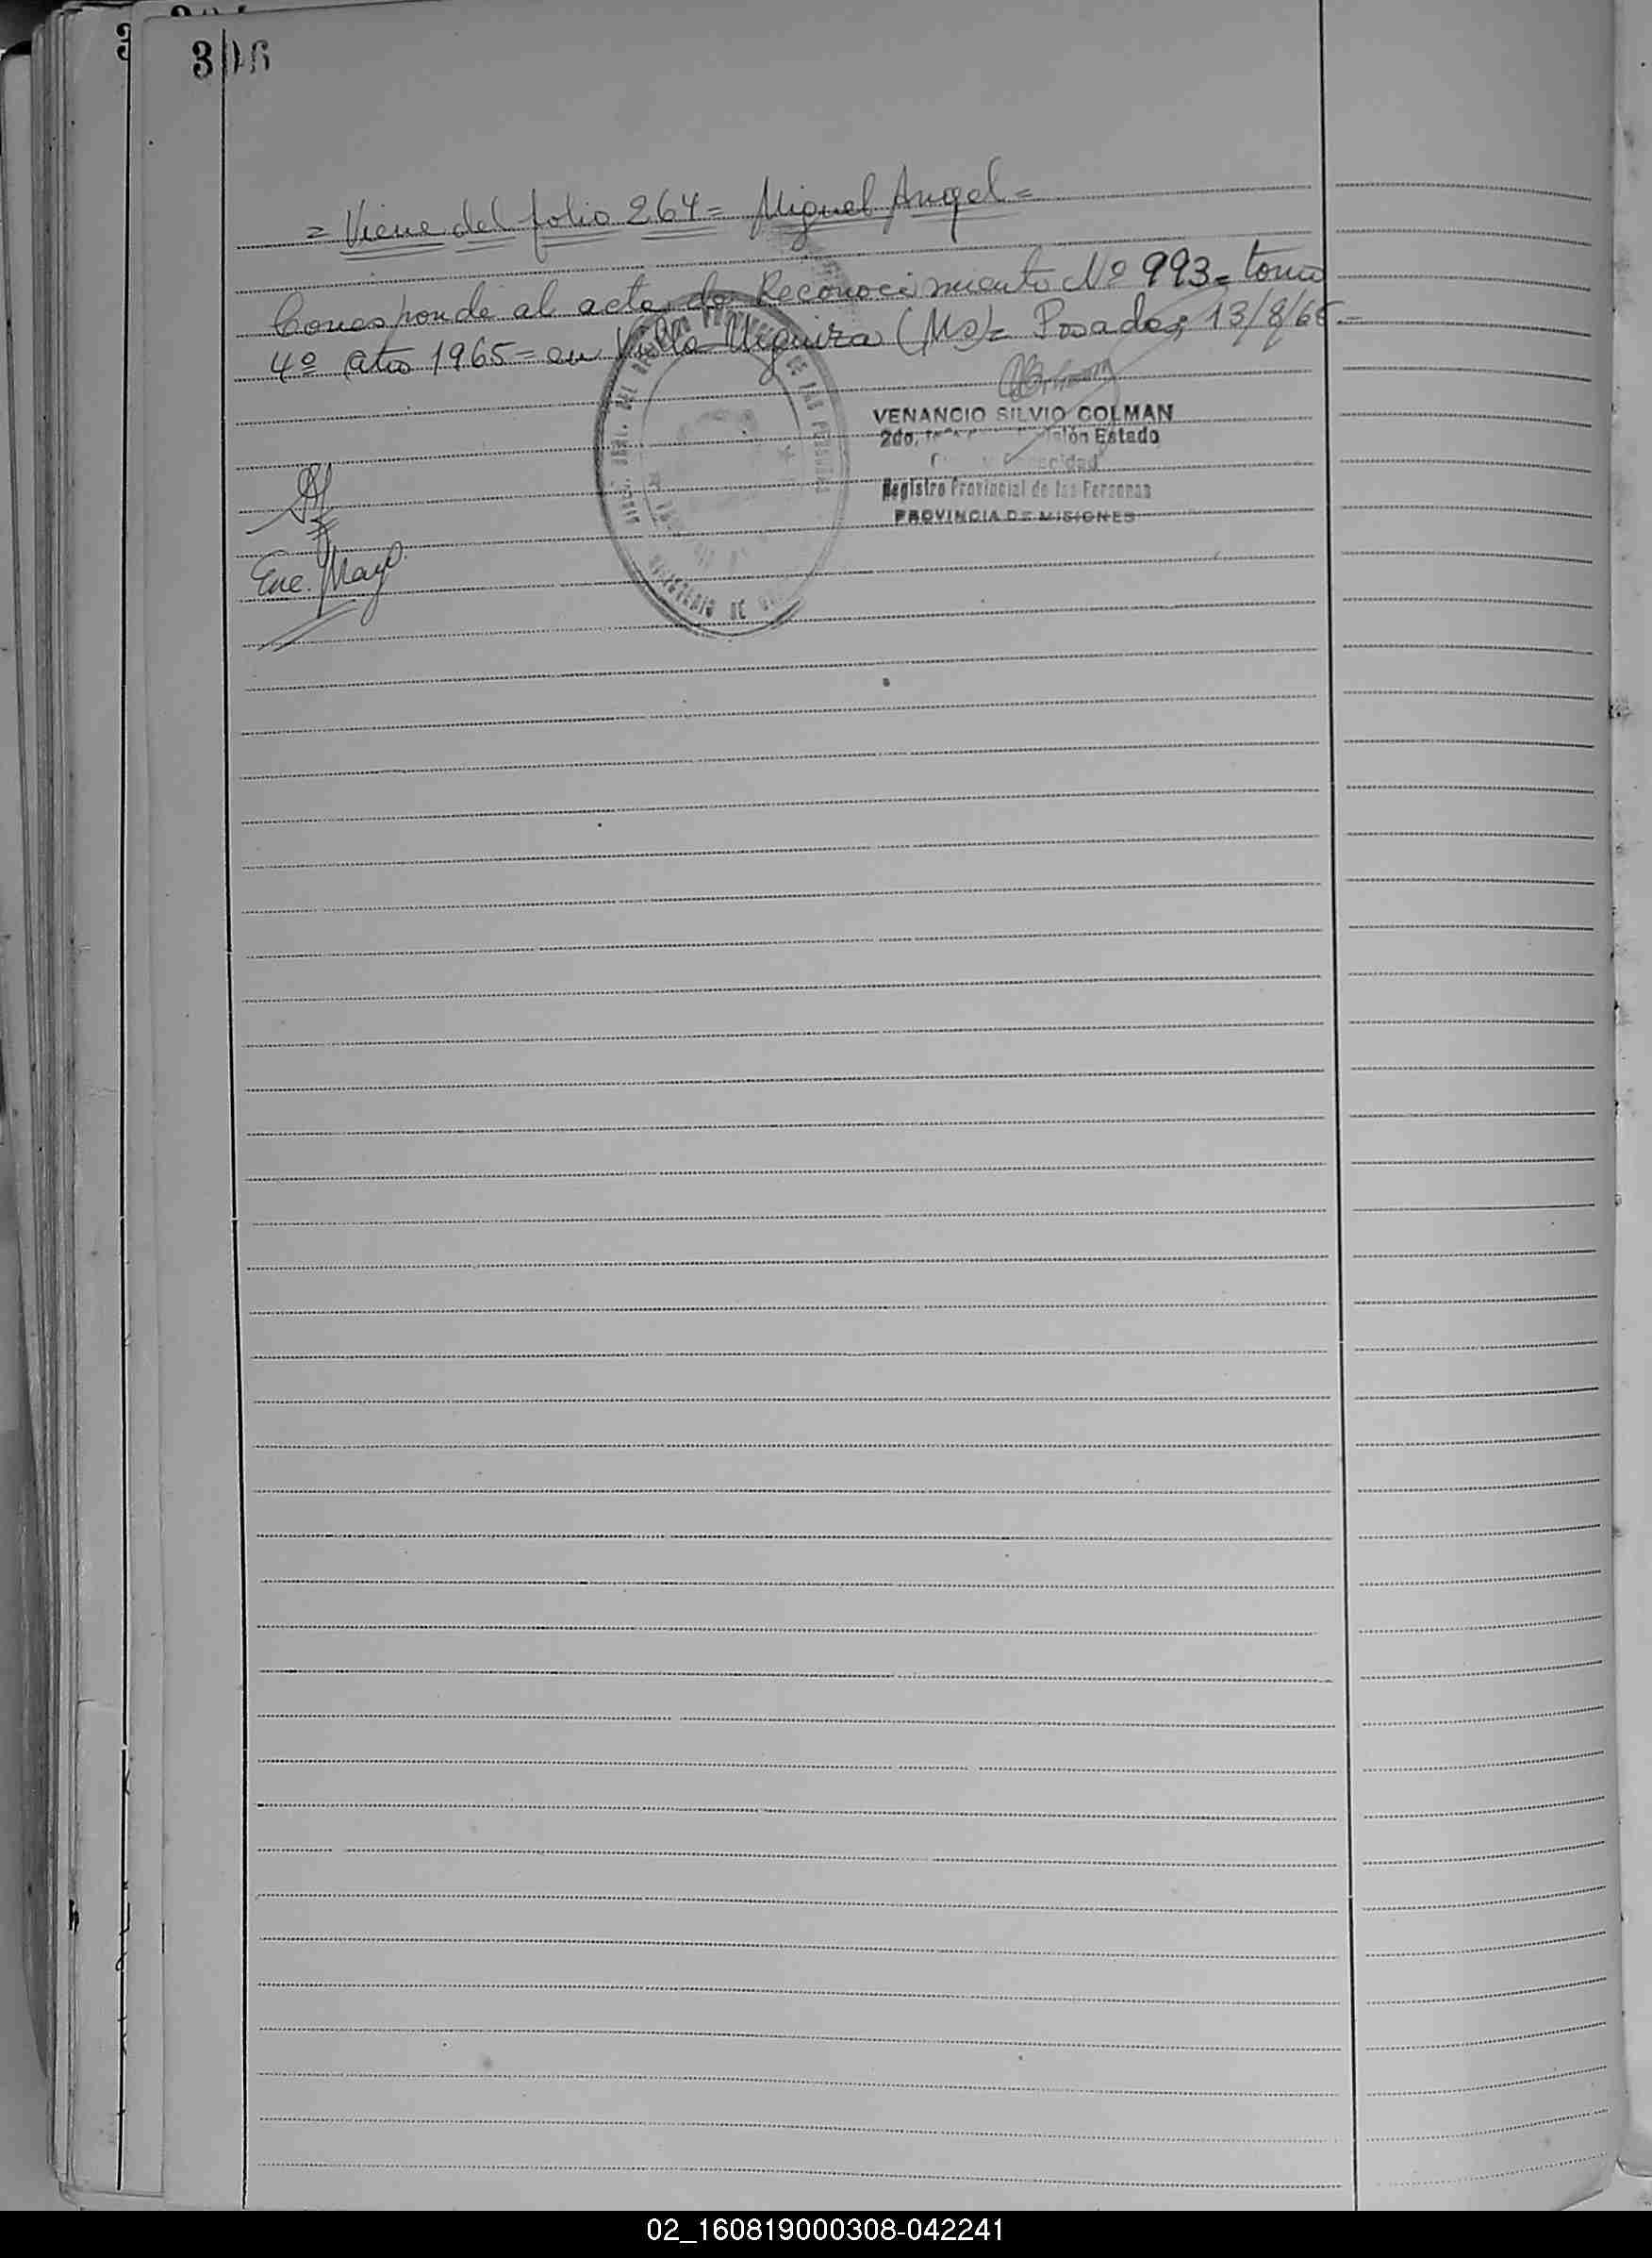 306
= Viene del folio 264 = Miguel Angel =
Corresponde al acta de Reconocimiento Nº 993 = tomo
4º Año 1965 = en Villa Urquiza (Ms) = Posadas 13/8/65 -
VENANCIO SILVIO COLMAN
2do. Estado
Registro Provincial de las Personas
PROVINCIA DE MISIONES
Ene. Mayo
DE LAS PERSONAS
MINISTERIO DE
02_160819000308-042241